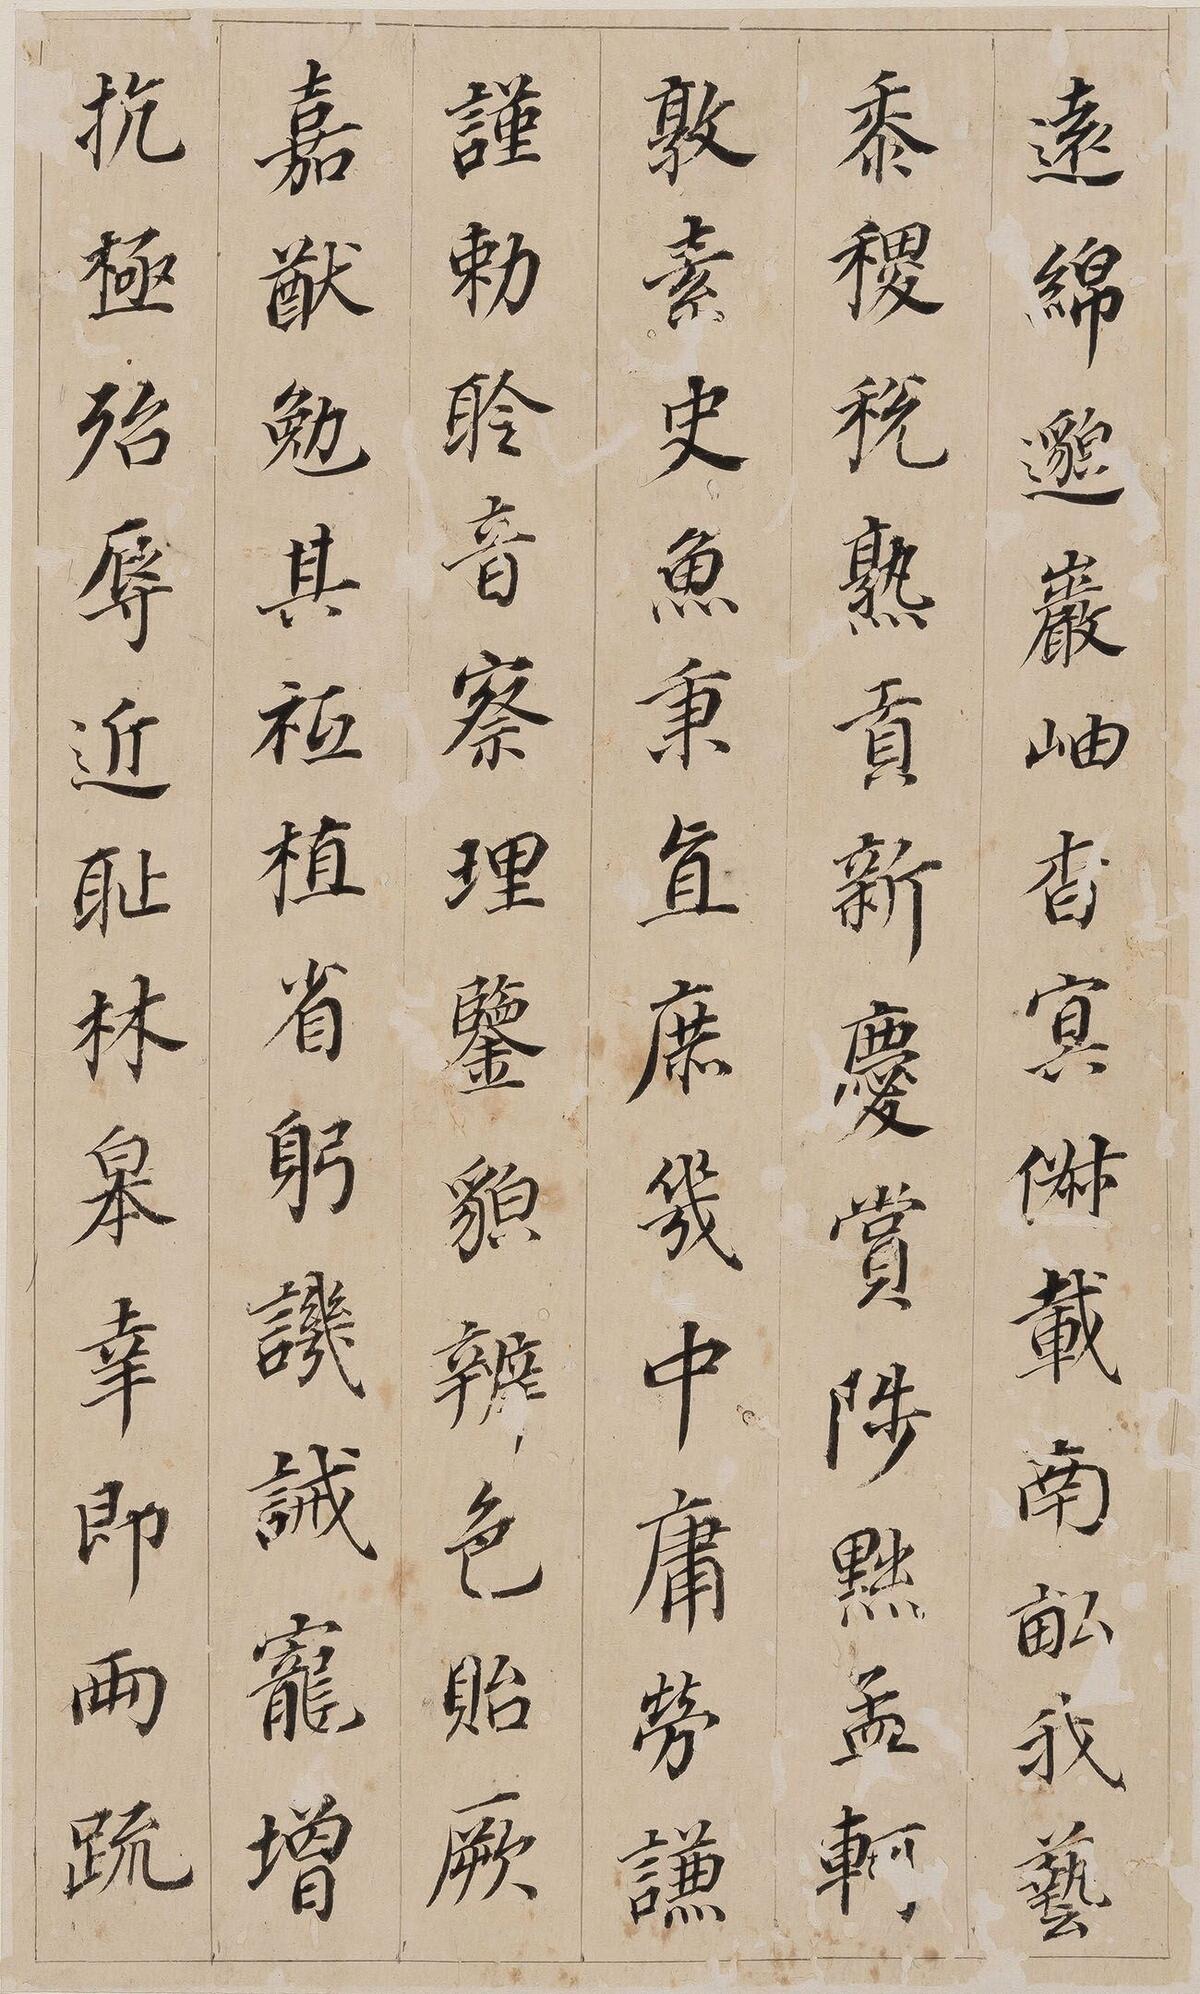 遠綿邈巖岫杳冥俶載南畝我藝
黍稷稅熟貢新慶賞陟黜孟軻
敦素史魚秉直庶幾中庸勞謙
謹勅聆音察理鑒貌辨色貽厥
嘉猷勉其祗植省躬譏誡寵增
抗極殆辱近耻林皋幸即兩疏